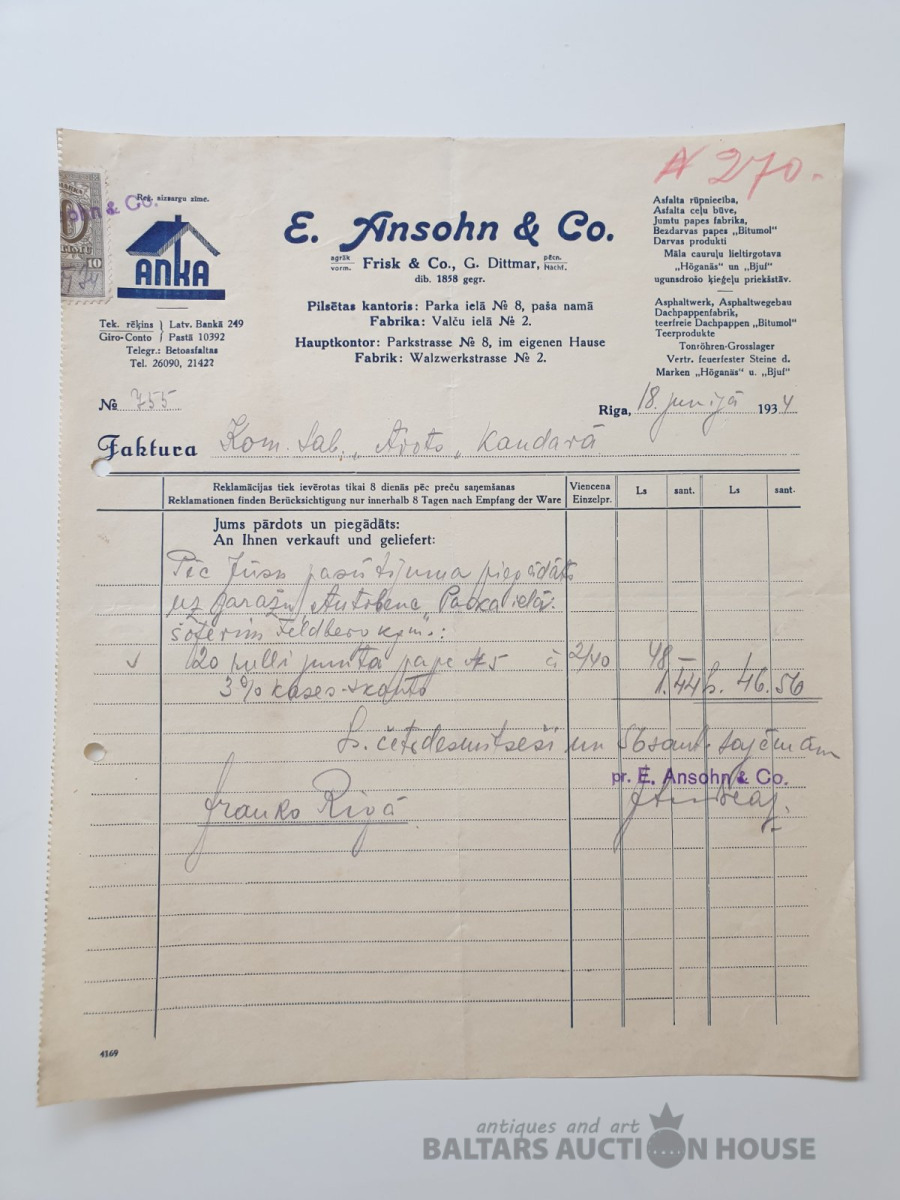 № 270.
10
ohn & Co.
Reg. aizsargu zīme.
ANKA
E. Ansohn & Co.
agrāk
vorm. Frisk & Co., G. Dittmar, pēcn.
Nachf.
dib. 1858 gegr.
Pilsētas kantoris: Parka ielā № 8, paša namā
Fabrika: Valču ielā № 2.
Hauptkontor: Parkstrasse № 8, im eigenen Hause
Fabrik: Walzwerkstrasse № 2.
Asfalta rūpniecība,
Asfalta ceļu būve,
Jumtu papes fabrika,
Bezdarvas papes „Bitumol"
Darvas produkti
Māla cauruļu lieltirgotava
„Höganäs" un „Bjuf"
ugunsdrošo ķieģeļu priekšstāv.
Asphaltwerk, Asphaltwegebau
Dachpappenfabrik,
teerfreie Dachpappen „Bitumol"
Teerprodukte
Tonröhren-Grosslager
Vertr. feuerfester Steine d.
Marken „Höganäs" u. „Bjuf"
Tek. rēķins } Latv. Bankā 249
Giro-Conto } Pastā 10392
Telegr.: Betoasfaltas
Tel. 26090, 21422
№ 755
Riga, 18. junijā 1934
Faktura Kom. sab. „Avots" Kandavā
Reklamācijas tiek ievērotas tikai 8 dienās pēc preču saņemšanas
Reklamationen finden Berücksichtigung nur innerhalb 8 Tagen nach Empfang der Ware
Viencena
Einzelpr.
Ls sant. Ls sant.
Jums pārdots un piegādāts:
An Ihnen verkauft und geliefert:
Pēc Jūsu pasūtījuma piegādāts
uz garažu „Autobene" Parka ielā
šoferim Feldberg kgm.:
120 rulli jumta pape № 5 à 2/40 48 —
3% kases-skonto 1.44 Ls. 46.56
Ls. četrdesmitseši un 56 sant. saņēmām
pr. E. Ansohn & Co.
franko Rīgā
4169
antiques and art
BALTARS AUCTION HOUSE